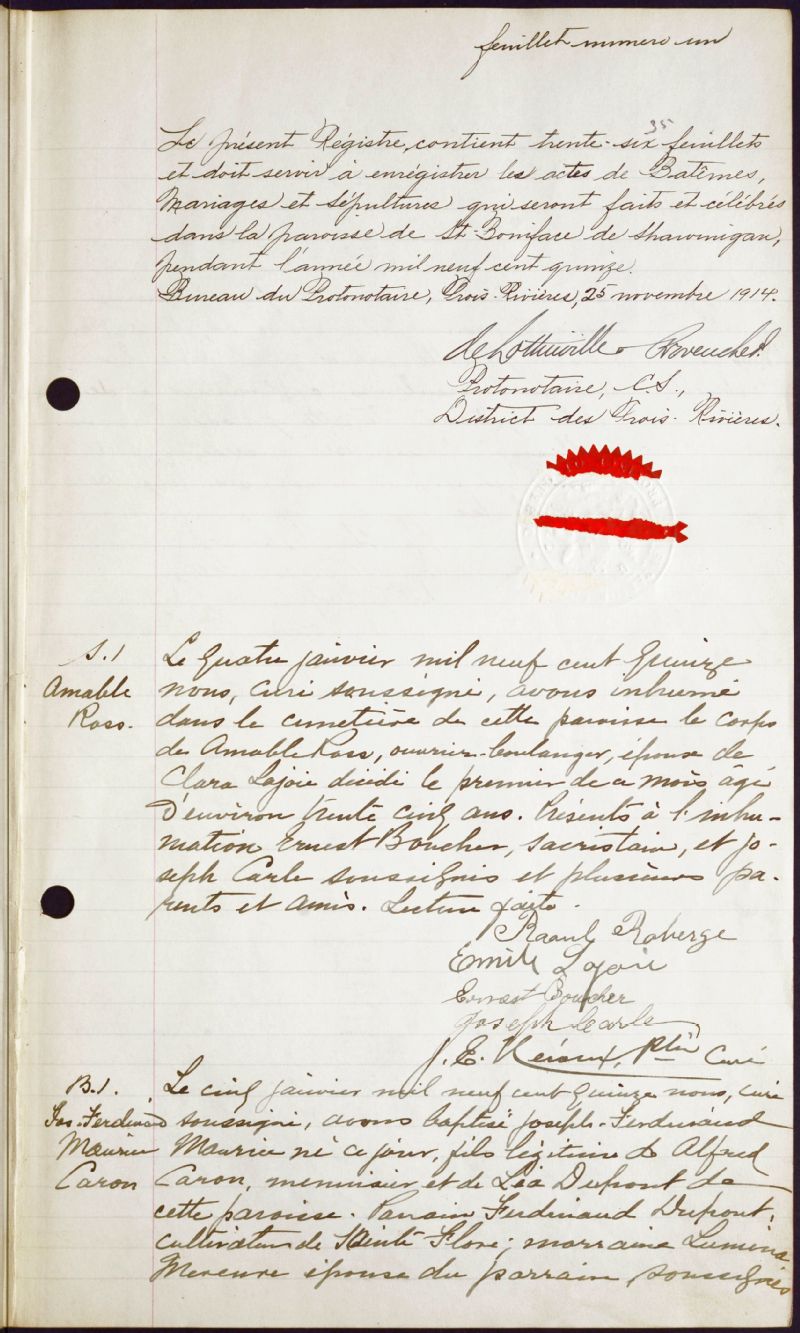 feuillet numero un
35
Le présent Régistre, contient trente-six feuillets
et doit servir à enrégistrer les actes de Batêmes,
Mariages et sépultures qui seront faits et célébrés
dans la paroisse de St-Boniface de Shawinigan,
pendant l'année mil neuf cent quinze.
Bureau du Protonotaire, Trois-Rivières, 25 novembre 1914.
Protonotaire, C.S.,
District des Trois-Rivières.
S.1 Le quatre janvier mil neuf cent quinze
Amable nous, curé soussigné, avons inhumé
Ross. dans le cimetière de cette paroisse le corps
de Amable Ross, ouvrier-boulanger, époux de
Clara Lajoie décédé le premier de ce mois âgé
d'environ trente cinq ans. Présents à l'inhu-
mation Ernest Boucher, sacristain, et jo-
seph Carle soussignés et plusieurs pa-
rents et amis. Lecture faite.
Raoul Roberge
Emile Lajoie
Ernest Boucher
Joseph Carle
J. E. Ptre Curé
B.1. Le cinq janvier mil neuf cent quinze nous, curé
Jos-Ferdinand soussigné, avons baptisé joseph-Ferdinand
Maurice Maurice né ce jour, fils légitime de Alfred
Caron Caron, menuisier et de Léa Dupont de
cette paroisse. Parrain Ferdinand Dupont,
cultivateur de Sainte Flore; marraine
Mercure épouse du parrain soussignés